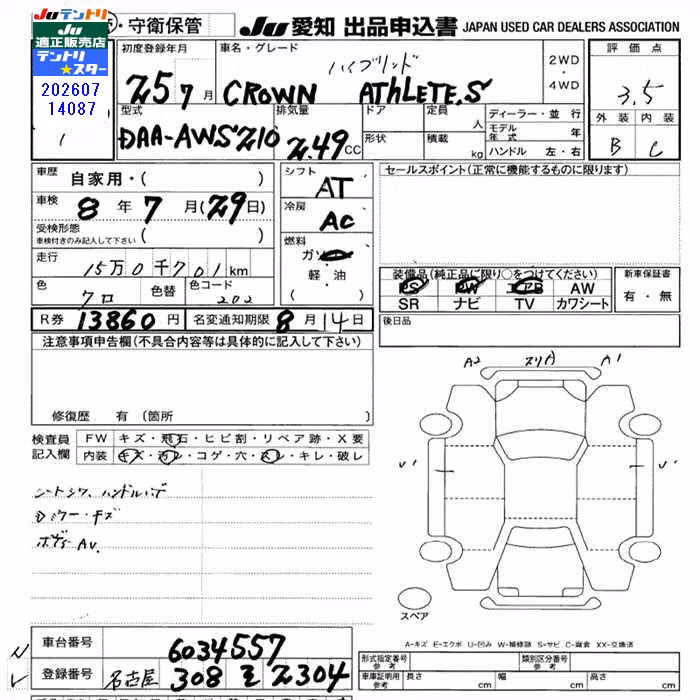 JUテントリ
JU
適正販売店
テントリ
★スター
202607
14087
1
・守衛保管
JU 愛知 出品申込書 JAPAN USED CAR DEALERS ASSOCIATION
初度登録年月
25 7 月
車名・グレード
ハイブリッド
CROWN ATHLETE.S
2WD
・
4WD
評価点
3.5
外装 内装
B C
型式
DAA-AWS210
排気量
2.49 CC
ドア
形状
定員 人
積載 kg
ディーラー・並行
モデル年式 年
ハンドル 左・右
車歴 自家用・( )
車検 8 年 7 月 (29日)
受検形態
車検付きのみ記入して下さい ( )
走行 15万0千701km
色 クロ 色替 色コード 202
シフト AT
冷房 AC
燃料
ガソ
軽・油
( )
セールスポイント(正常に機能するものに限ります)
装備品(純正品に限り○をつけてください)
PS PW エアB AW
SR ナビ TV カワシート
新車保証書
有・無
R券 13860 円 名変通知期限 8 月 14 日
後日品
注意事項申告欄(不具合内容等は具体的に記入して下さい)
修復歴 有(箇所
検査員
記入欄
FW キズ・飛石・ヒビ割・リペア跡・X要
内装 キズ・汚レ・コゲ・穴・スレ・キレ・破レ
シートシワ、ハンドルハゲ
Dミラー・キズ
ボディ AU.
A2 スリ(A) A1
U1 U1
スペア
A-キズ E-エクボ U-凹み W-補修跡 S-サビ C-腐食 XX-交換済
車台番号 6034557
登録番号 名古屋 308 2304
形式指定番号
参考
類別区分番号
参考
車庫証明用
参考
長さ cm 幅 cm 高さ cm